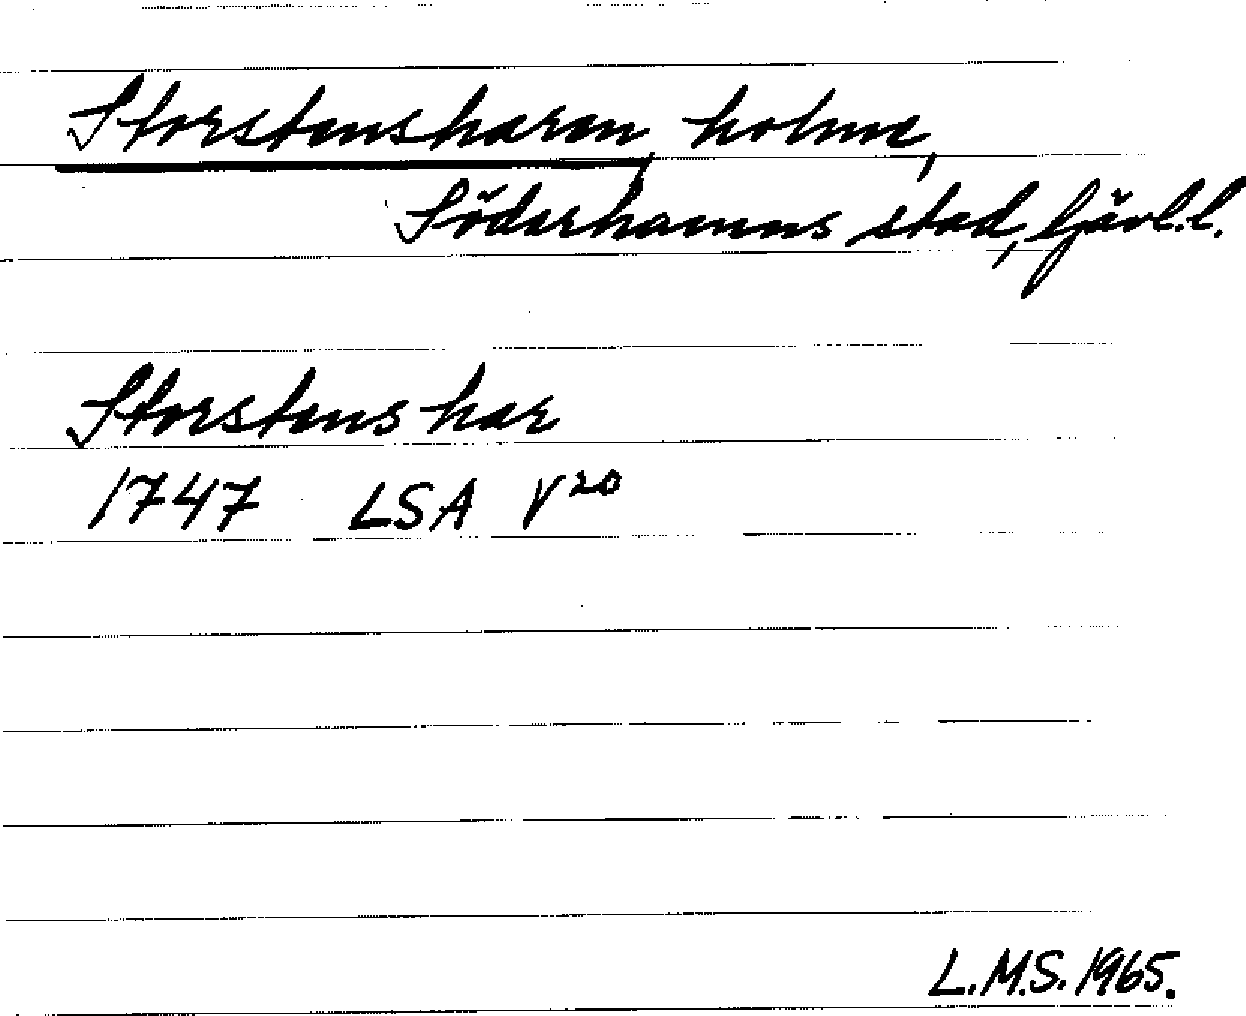 Storstensharen, holme,
Söderhamns stad, Gävl.l.
Storstens har
1747 LSA V²⁰
L.M.S. 1965.